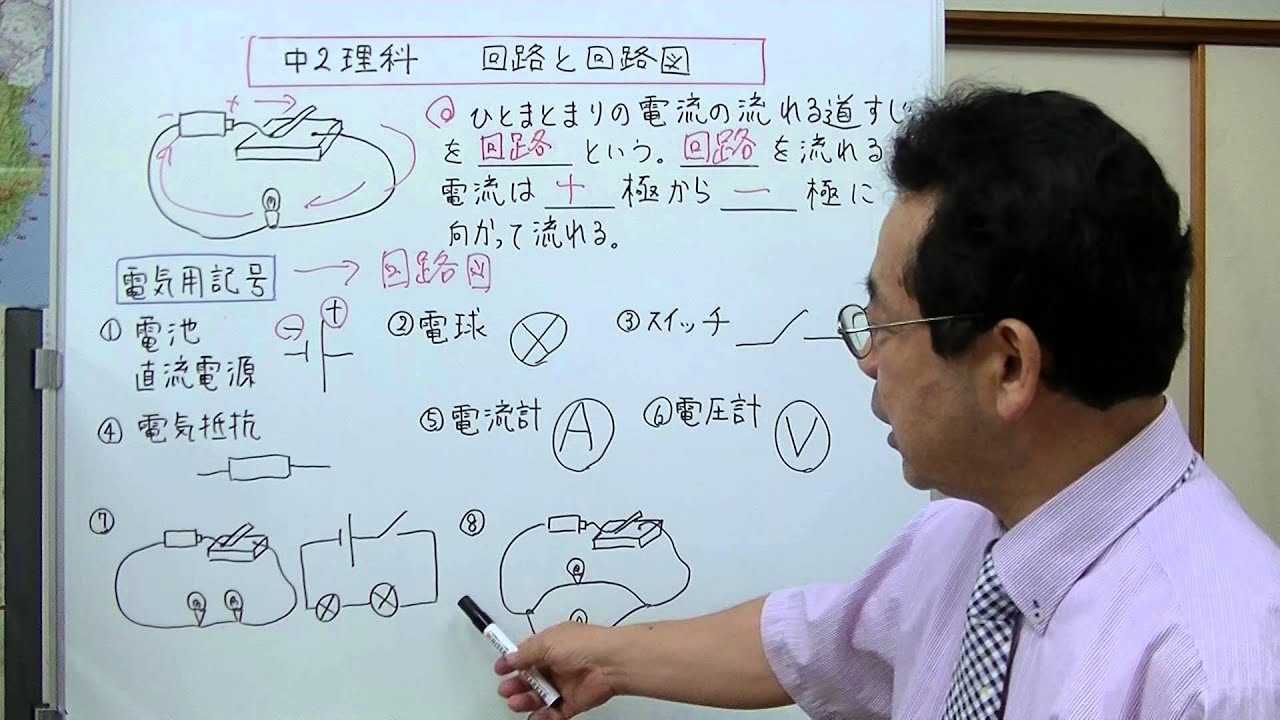 中2理科 回路と回路図
+
−
◎ ひとまとまりの電流の流れる道すじ
を 回路 という。回路 を流れる
電流は + 極から − 極に
向かって流れる。
電気用記号 → 回路図
① 電池
直流電源
− +
② 電球
③ スイッチ
④ 電気抵抗
⑤ 電流計 A
⑥ 電圧計 V
⑦
⑧